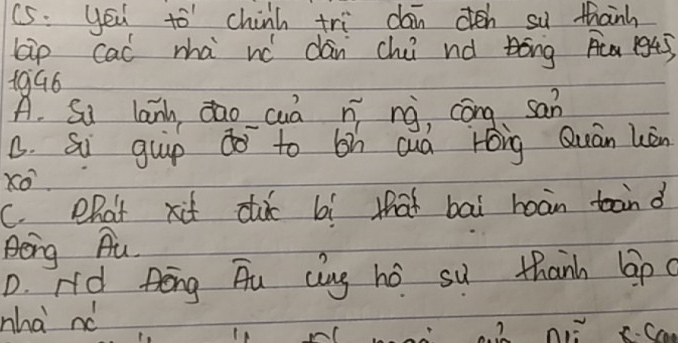 C5: yếu tố chính trị dẫn đến sự thành
lập các nhà nc dân chủ nd Đông Âu 1945,
1946
A. Sự lãnh đạo của n~ ng, cộng sản
B. Sự giúp đỡ to lớn của Hồng Quân Liên
xô.
C. Phát xít đức bị thất bại hoàn toàn ở
Đông Âu.
D. Nd Đông Âu ủng hộ sự thành lập c
nhà nc